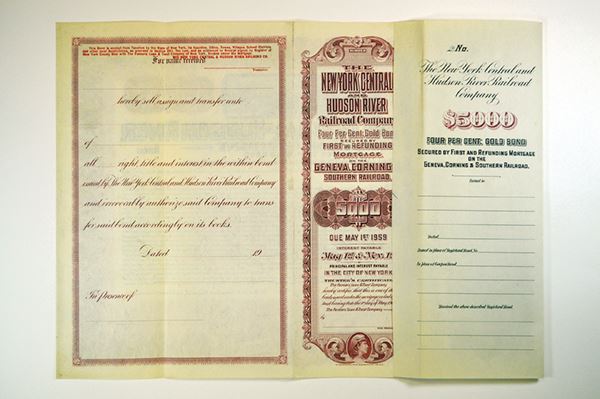 This Bond is exempt from Taxation by the State of New York,
THE NEW YORK CENTRAL & HUDSON RIVER RAILROAD CO.
For value received
hereby sell assign and transfer unto
of
all right, title and interest in the within bond
issued by The New York Central and Hudson River Railroad Company
and irrevocably authorize said Company to trans
fer said bond accordingly on its books.
Dated 19
In presence of
NUMBER
THE
NEW YORK CENTRAL
AND
HUDSON RIVER
Railroad Company
Four Per Cent: Gold Bon
SECURED BY
FIRST AND REFUNDING
MORTGAGE
ON THE
GENEVA, CORNING &
SOUTHERN RAILROAD.
5000
DUE MAY 1ST 1959
INTEREST PAYABLE
May 1st & Nov. 1s
PRINCIPAL AND INTEREST PAYABLE
IN THE CITY OF NEW YORK
TRUSTEE'S CERTIFICATE
The Farmers Loan & Trust Company
No.
The New York Central and
Hudson River Railroad
Company,
$5000
FOUR PER CENT: GOLD BOND
SECURED BY FIRST AND REFUNDING MORTGAGE
ON THE
GENEVA, CORNING & SOUTHERN RAILROAD.
Issued to
Dated
Issued in place of Registered Bond, No.
In place of Coupon Bond
Received the above described Registered Bond